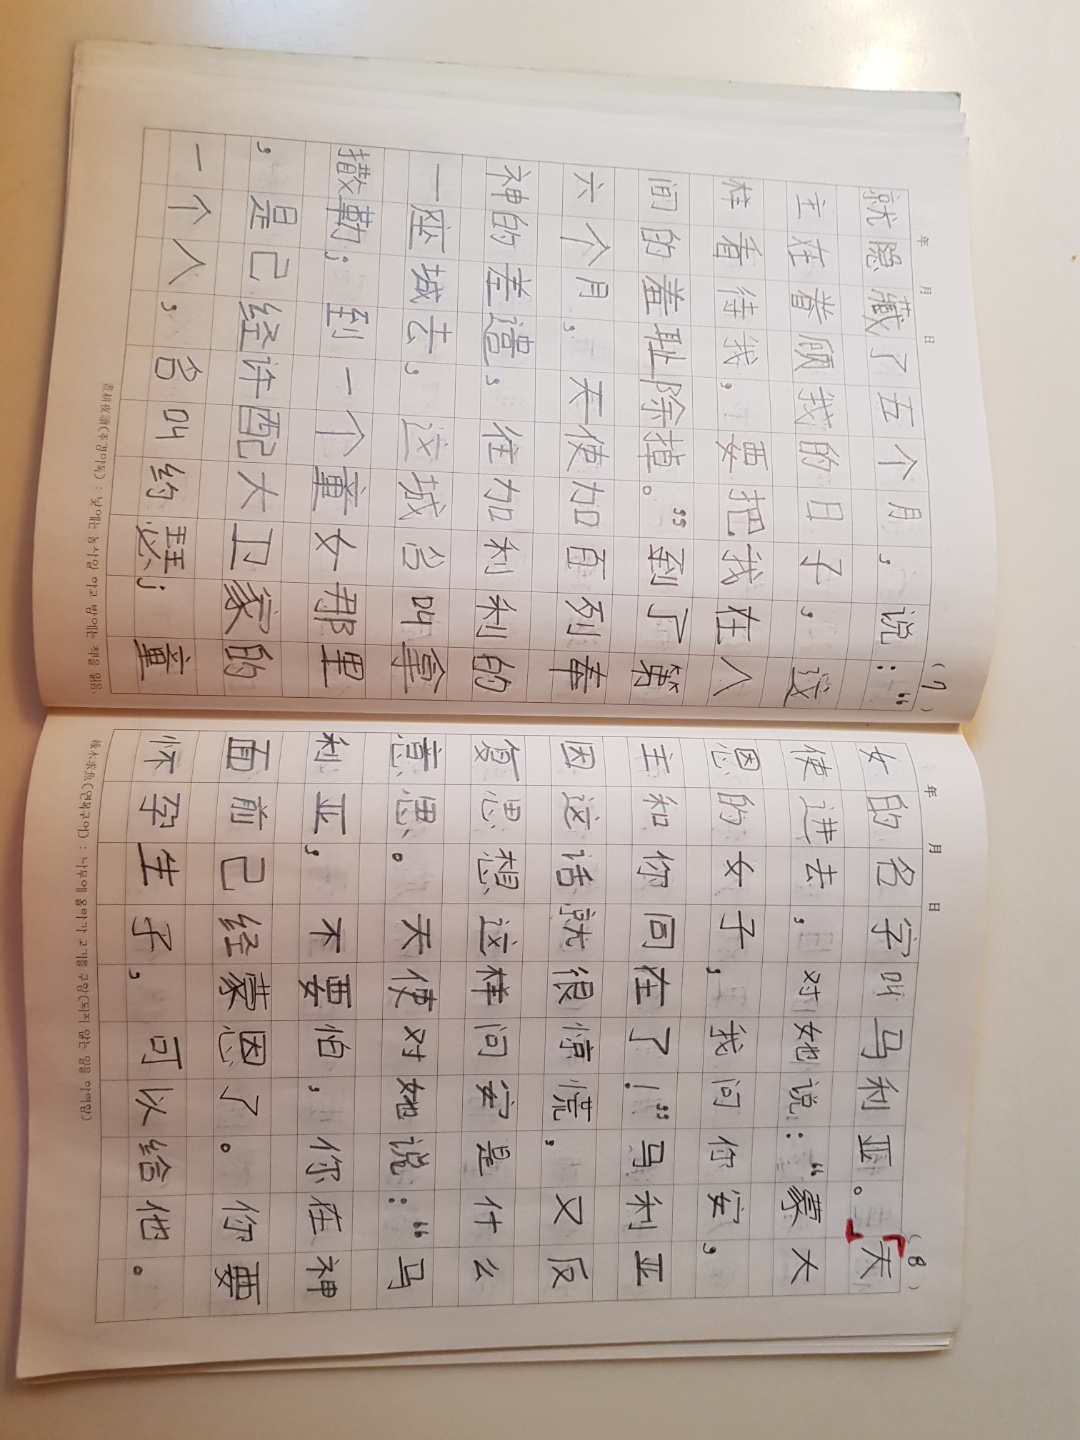 年 月 日 (7)
就隐藏了五个月,说:“
主在眷顾我的日子,这
样看待我,要把我在人
间的羞耻除掉。”到了第
六个月,天使加百列奉
神的差遣,往加利利的
一座城去,这城名叫拿
撒勒;到一个童女那里
,是已经许配大卫家的
一个人,名叫约瑟;童
晝耕夜讀(주경야독) : 낮에는 농사일 하고 밤에는 책을 읽음.
年 月 日 (8)
女的名字叫马利亚。「天」
使进去,对她说:“蒙大
恩的女子,我问你安,
主和你同在了!”马利亚
因这话就很惊慌,又反
复思想这样问安是什么
意思。天使对她说:“马
利亚,不要怕,你在神
面前已经蒙恩了。你要
怀孕生子,可以给他。
緣木求魚(연목구어) : 나무에 올라가 고기를 구함(되지 않는 일을